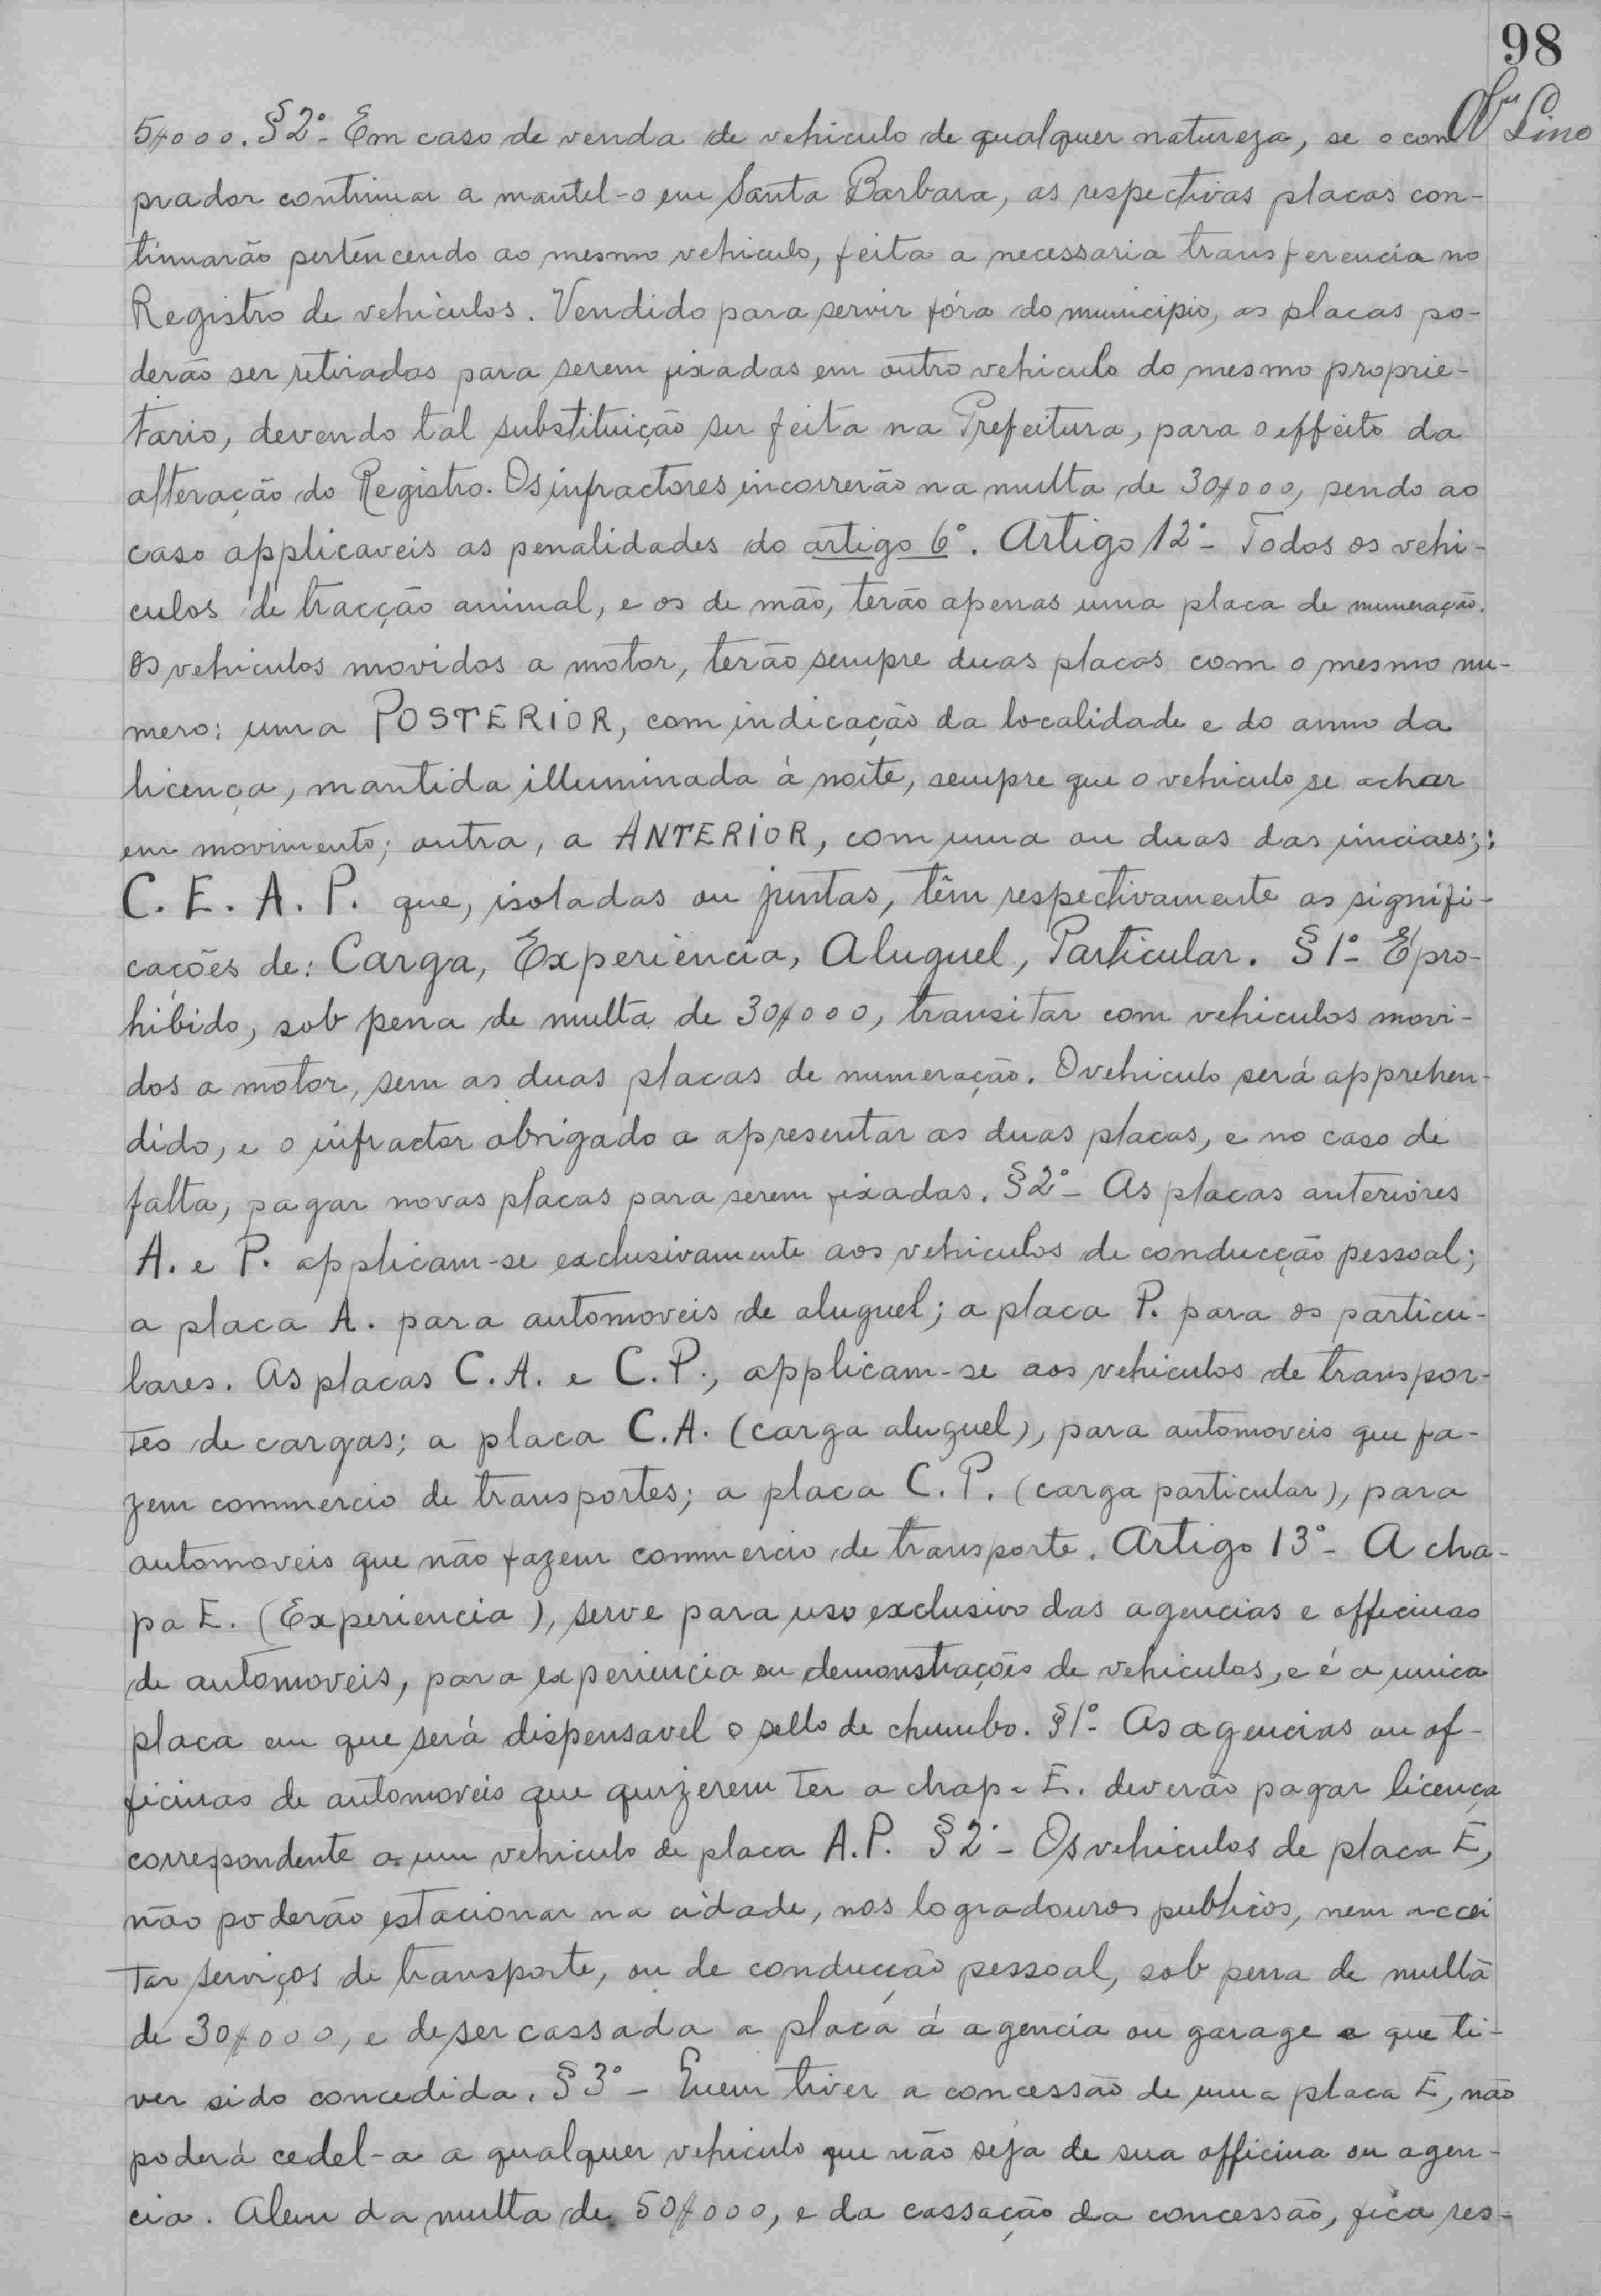 98
5$000. § 2º- Em caso de venda de vehiculo de qualquer natureza, se o com Lino
prador continuar a mantel-o em Santa Barbara, as respectivas placas con-
tinuarão pertencendo ao mesmo vehiculo, feita a necessaria transferencia no
Registro de vehiculos. Vendido para servir fóra do municipio, as placas po-
derão ser retiradas para serem fixadas em outro vehiculo do mesmo proprie-
tario, devendo tal substituição ser feita na Prefeitura, para o effeito da
alteração do Registro. Os infractores incorrerão na multa de 30$000, sendo ao
caso applicaveis as penalidades do artigo 6º. Artigo 12º- Todos os vehi-
culos de tracção animal, e os de mão, terão apenas uma placa de numeração.
Os vehiculos movidos a motor, terão sempre duas placas com o mesmo nu-
mero: uma POSTERIOR, com indicação da localidade e do anno da
licença, mantida illuminada á noite, sempre que o vehiculo se achar
em movimento; outra, a ANTERIOR, com uma ou duas das iniciaes;:
C. E. A. P. que, isoladas ou juntas, têm respectivamente as signifi-
cações de: Carga, Experiencia, Aluguel, Particular. § 1º- É pro-
hibido, sob pena de multa de 30$000, transitar com vehiculos movi-
dos a motor, sem as duas placas de numeração. O vehiculo será apprehen-
dido, e o infractor obrigado a apresentar as duas placas, e no caso de
falta, pagar novas placas para serem fixadas. § 2º- As placas anteriores
A. e P. applicam-se exclusivamente aos vehiculos de conducção pessoal;
a placa A. para automoveis de aluguel; a placa P. para os particu-
lares. As placas C.A. e C.P., applicam-se aos vehiculos de transpor-
tes de cargas; a placa C.A. (carga aluguel), para automoveis que fa-
zem commercio de transportes; a placa C.P. (carga particular), para
automoveis que não fazem commercio de transporte. Artigo 13º- A cha-
pa E. (Experiencia), serve para uso exclusivo das agencias e officinas
de automoveis, para experiencia ou demonstrações de vehiculos, e é a unica
placa em que será dispensavel o sello de chumbo. § 1º- As agencias ou of-
ficinas de automoveis que quizerem ter a chapa E. deverão pagar licença
correspondente a um vehiculo de placa A.P. § 2º- Os vehiculos de placa E,
não poderão estacionar na cidade, nos logradouros publicos, nem accei
tar serviços de transporte, ou de conducção pessoal, sob pena de multa
de 30$000, e de ser cassada a placa á agencia ou garage a que ti-
ver sido concedida. § 3º- Quem tiver a concessão de uma placa E, não
poderá cedel-a a qualquer vehiculo que não seja de sua officina ou agen-
cia. Alem da multa de 50$000, e da cassação da concessão, fica res-